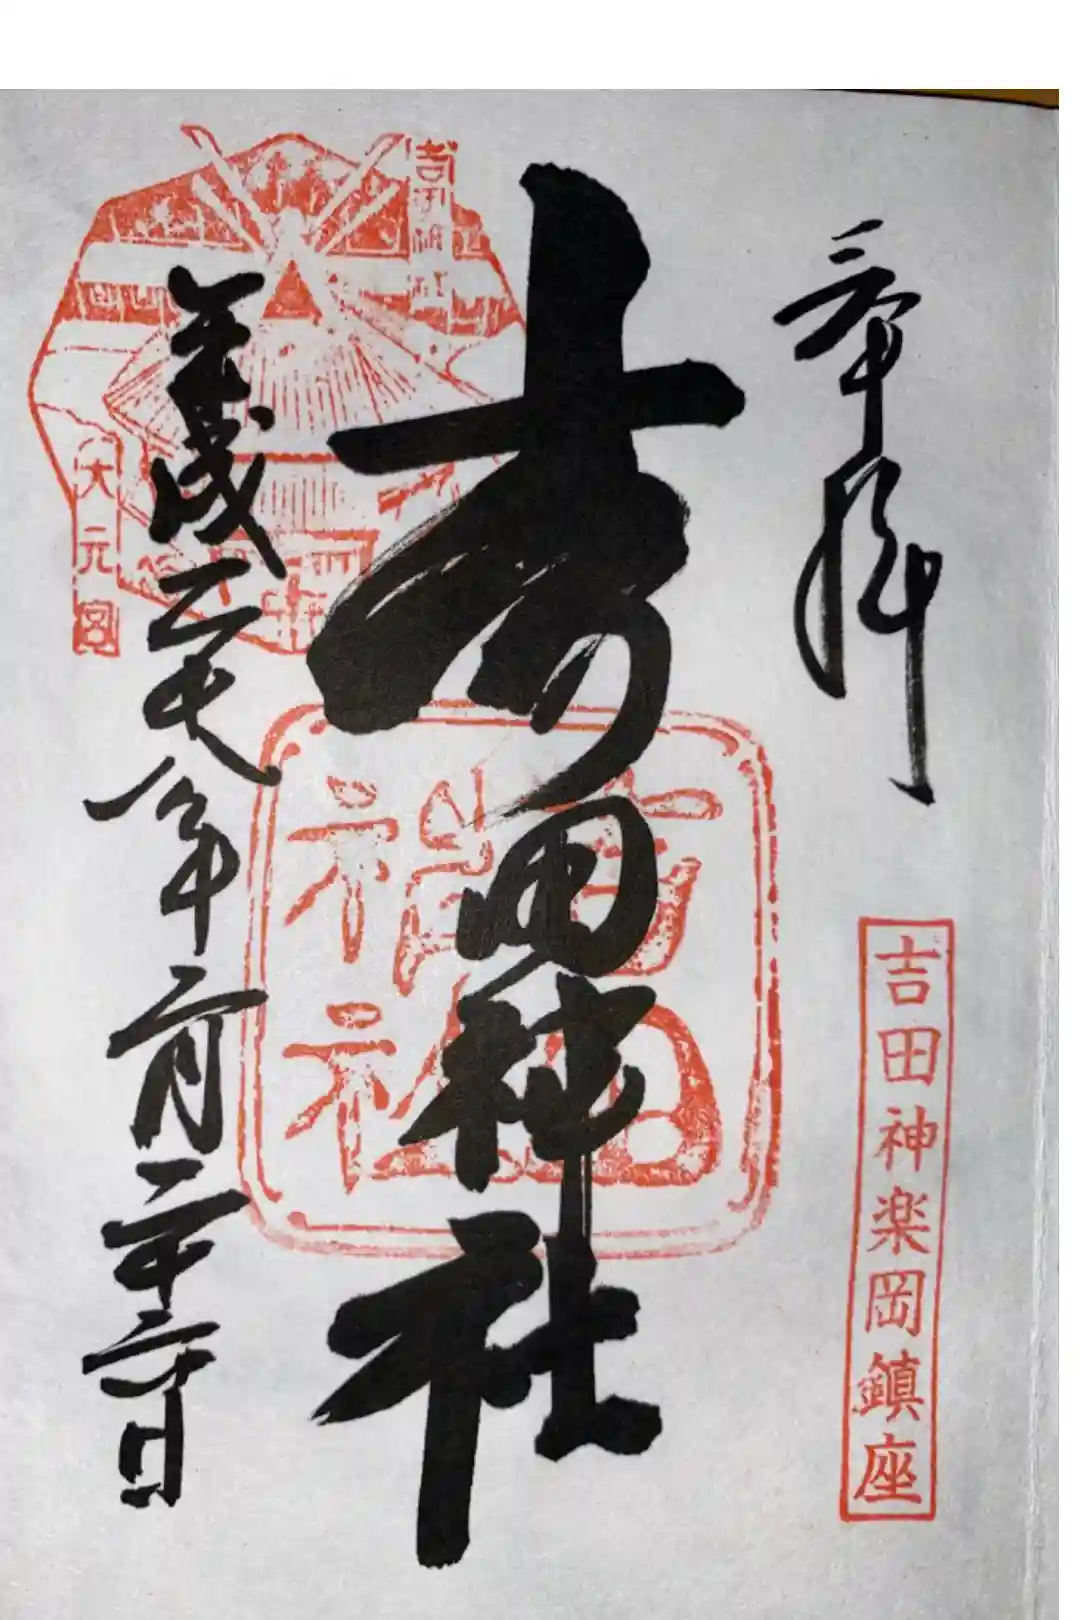 奉拝
吉田神楽岡鎮座
吉田神社
吉田神社
吉田神社
平成二十年二月二十日
大元宮